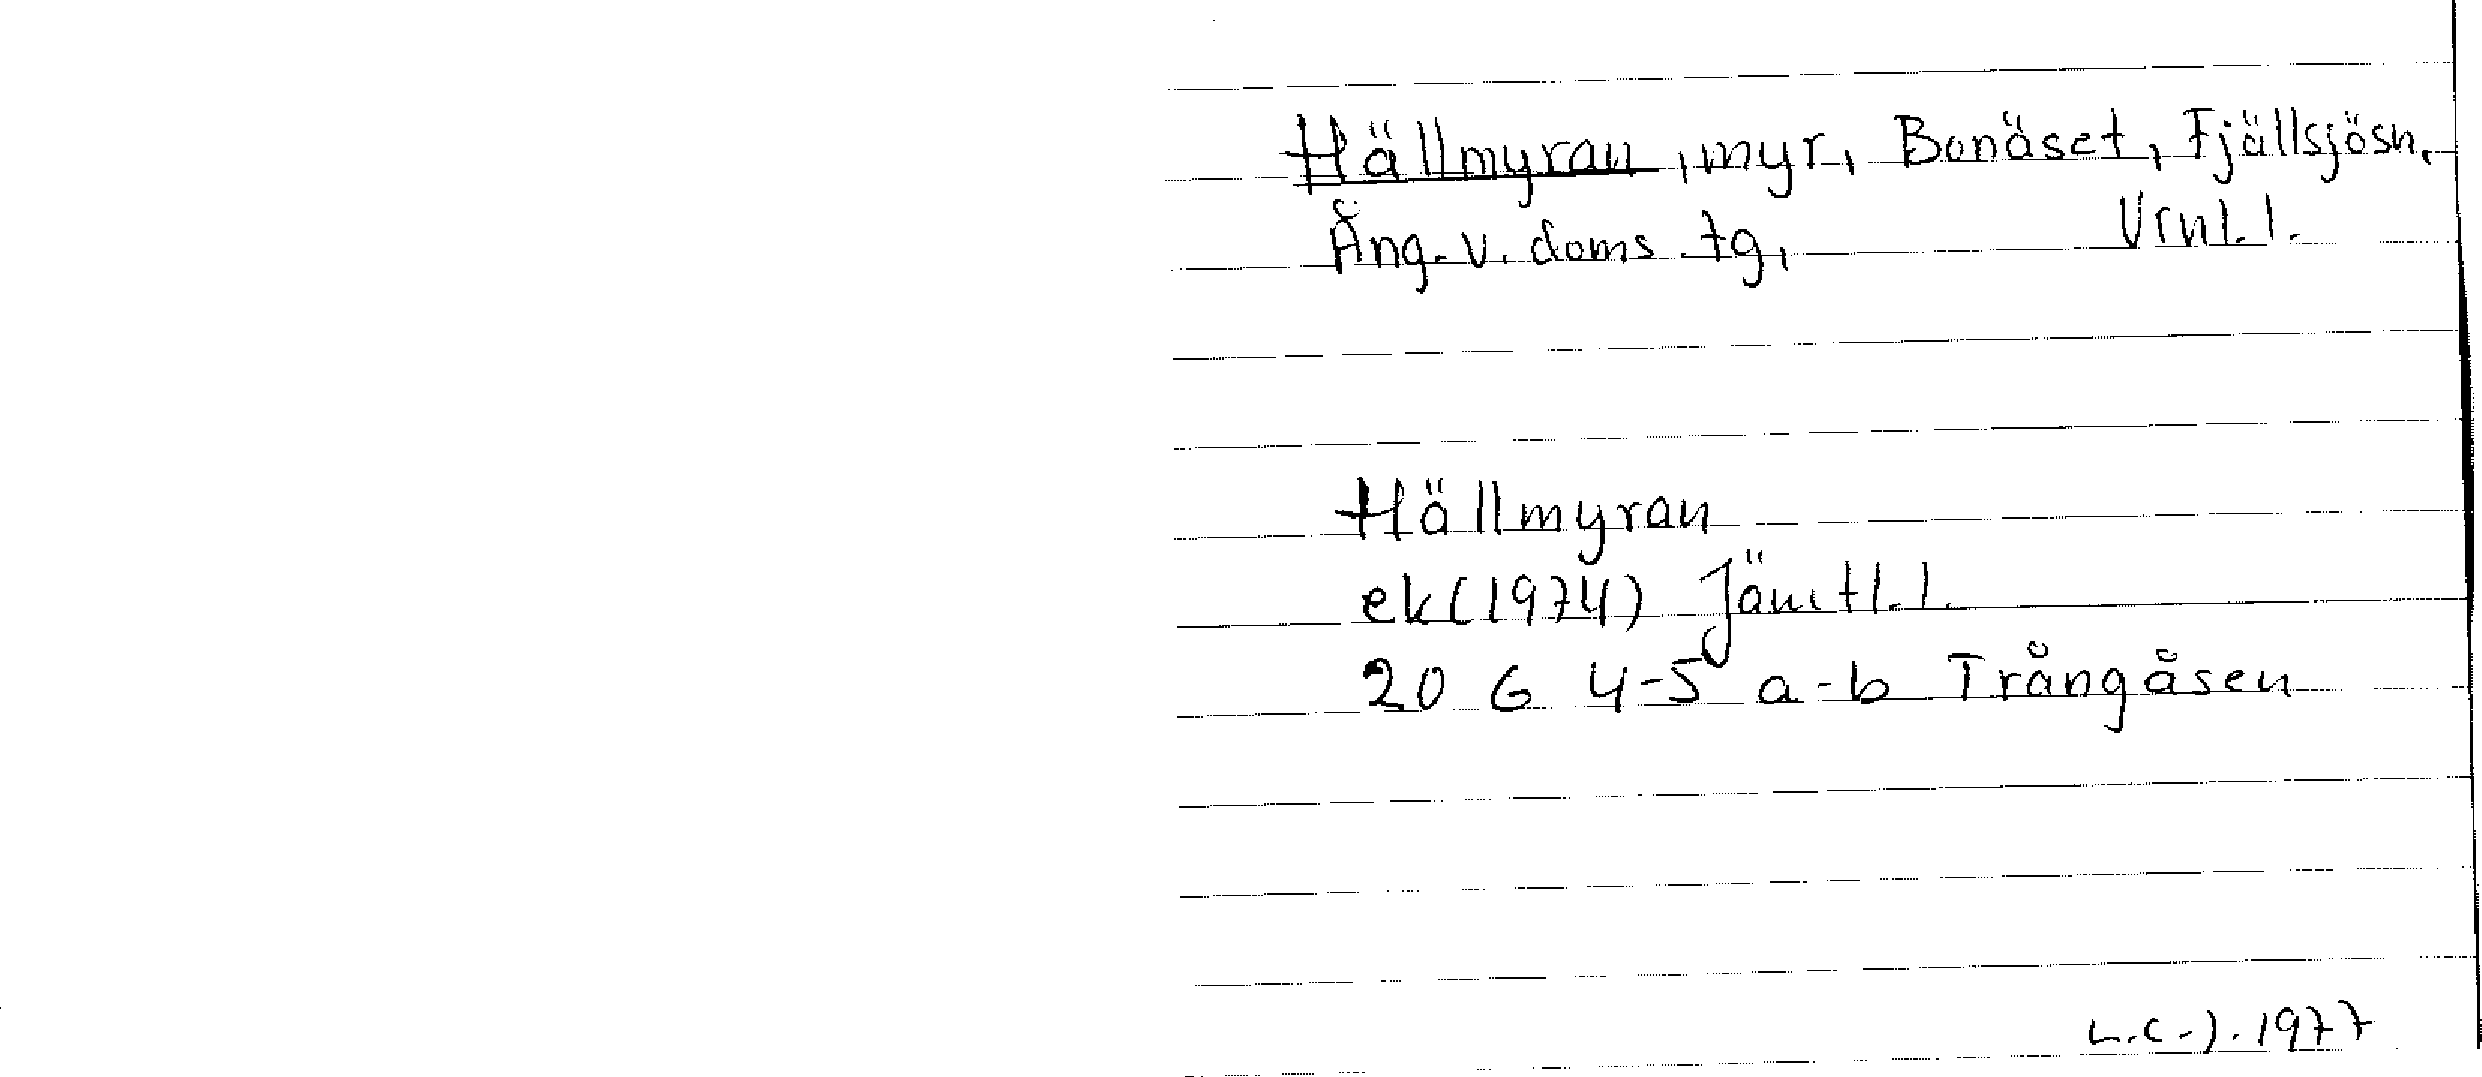 Hällmyran, myr, Bonäset, Fjällsjösn,
Ång. v. doms. tg, Vrnl. l.
Hällmyran
ek (1974) Jämtl. l.
20 G 4-5 a-b Trångåsen
L.C-J. 1977